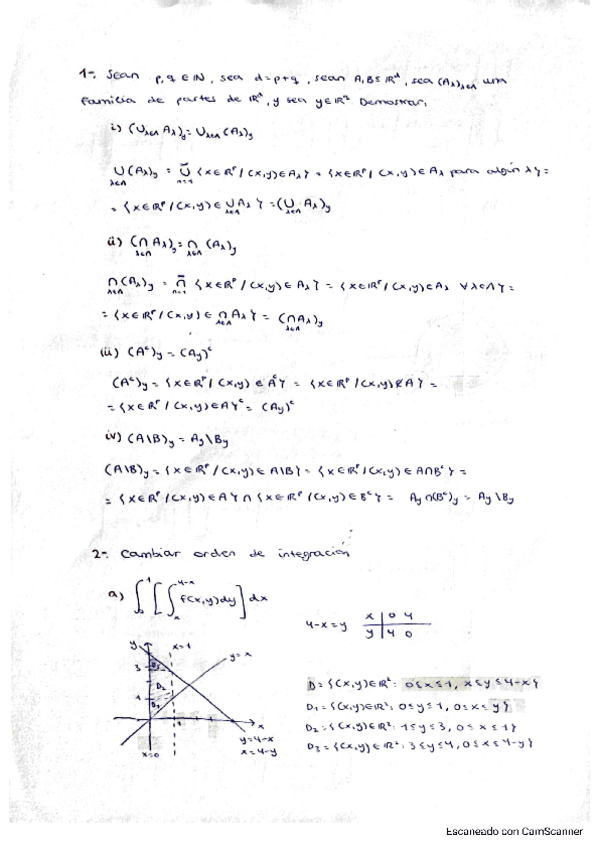 1-. Sean p,q ∈ ℕ, sea d=p+q, sean A,B⊆ℝᵈ, sea (Aλ)λ∈Λ una
familia de partes de ℝᵈ, y sea y∈ℝ^q Demostrar:
i) (∪λ∈Λ Aλ)y = ∪λ∈Λ (Aλ)y
∪λ∈Λ (Aλ)y = ∪n=1 {x∈ℝᵖ/(x,y)∈Aλ} = {x∈ℝᵖ/(x,y)∈Aλ para algún λ} =
= {x∈ℝᵖ/(x,y)∈ ∪λ∈Λ Aλ} = (∪λ∈Λ Aλ)y
ii) (∩λ∈Λ Aλ)y = ∩λ∈Λ (Aλ)y
∩λ∈Λ (Aλ)y = ∩n=1 {x∈ℝᵖ/(x,y)∈Aλ} = {x∈ℝᵖ/(x,y)∈Aλ ∀λ∈Λ} =
= {x∈ℝᵖ/(x,y)∈ ∩λ∈Λ Aλ} = (∩λ∈Λ Aλ)y
iii) (Aᶜ)y = (Ay)ᶜ
(Aᶜ)y = {x∈ℝᵖ/(x,y)∈Aᶜ} = {x∈ℝᵖ/(x,y)∉A} =
= {x∈ℝᵖ/(x,y)∈A}ᶜ = (Ay)ᶜ
iv) (A\B)y = Ay\By
(A\B)y = {x∈ℝᵖ/(x,y)∈A\B} = {x∈ℝᵖ/(x,y)∈A∩Bᶜ} =
= {x∈ℝᵖ/(x,y)∈A} ∩ {x∈ℝᵖ/(x,y)∈Bᶜ} = Ay∩(Bᶜ)y = Ay\By
2-. Cambiar orden de integración
a) ∫₀¹ [∫ₓ⁴⁻ˣ f(x,y)dy] dx
4-x=y
x | 0 4
y | 4 0
y x=1 y=x
3 D3
D2
1 D1
1 x
x=0
y=4-x
x=4-y
D={(x,y)∈ℝ²: 0≤x≤1, x≤y≤4-x}
D1={(x,y)∈ℝ²: 0≤y≤1, 0≤x≤y}
D2={(x,y)∈ℝ²: 1≤y≤3, 0≤x≤1}
D3={(x,y)∈ℝ²: 3≤y≤4, 0≤x≤4-y}
Escaneado con CamScanner